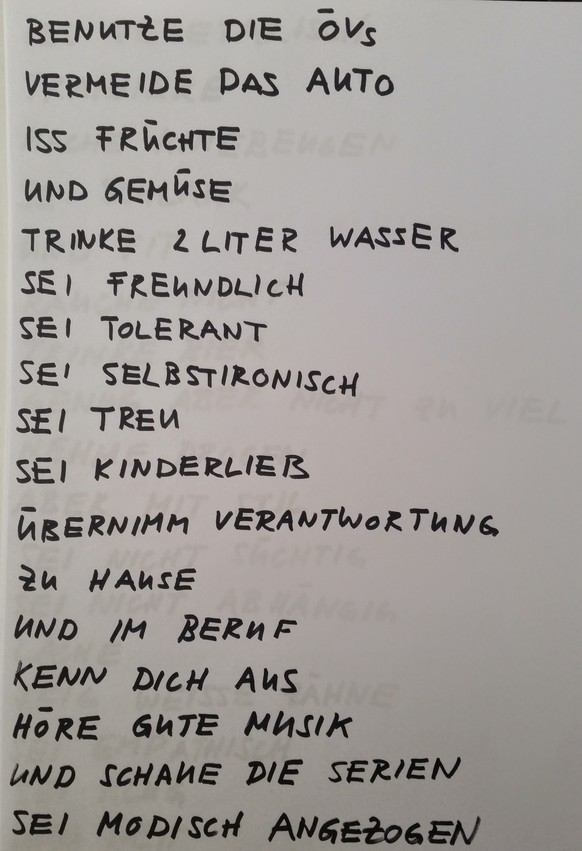 BENUTZE DIE ÖVs
VERMEIDE DAS AUTO
ISS FRÜCHTE
UND GEMÜSE
TRINKE 2 LITER WASSER
SEI FREUNDLICH
SEI TOLERANT
SEI SELBSTIRONISCH
SEI TREU
SEI KINDERLIEB
ÜBERNIMM VERANTWORTUNG
ZU HAUSE
UND IM BERUF
KENN DICH AUS
HÖRE GUTE MUSIK
UND SCHAUE DIE SERIEN
SEI MODISCH ANGEZOGEN